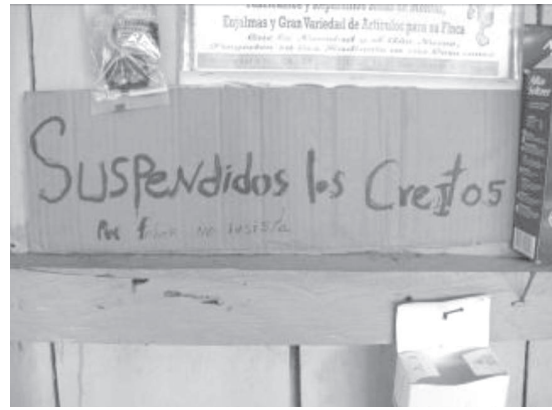 Enjalmas y Gran Variedad de Artículos para su Finca
Suspendidos los CreItos
Por favor no insista
Alka
Seltzer